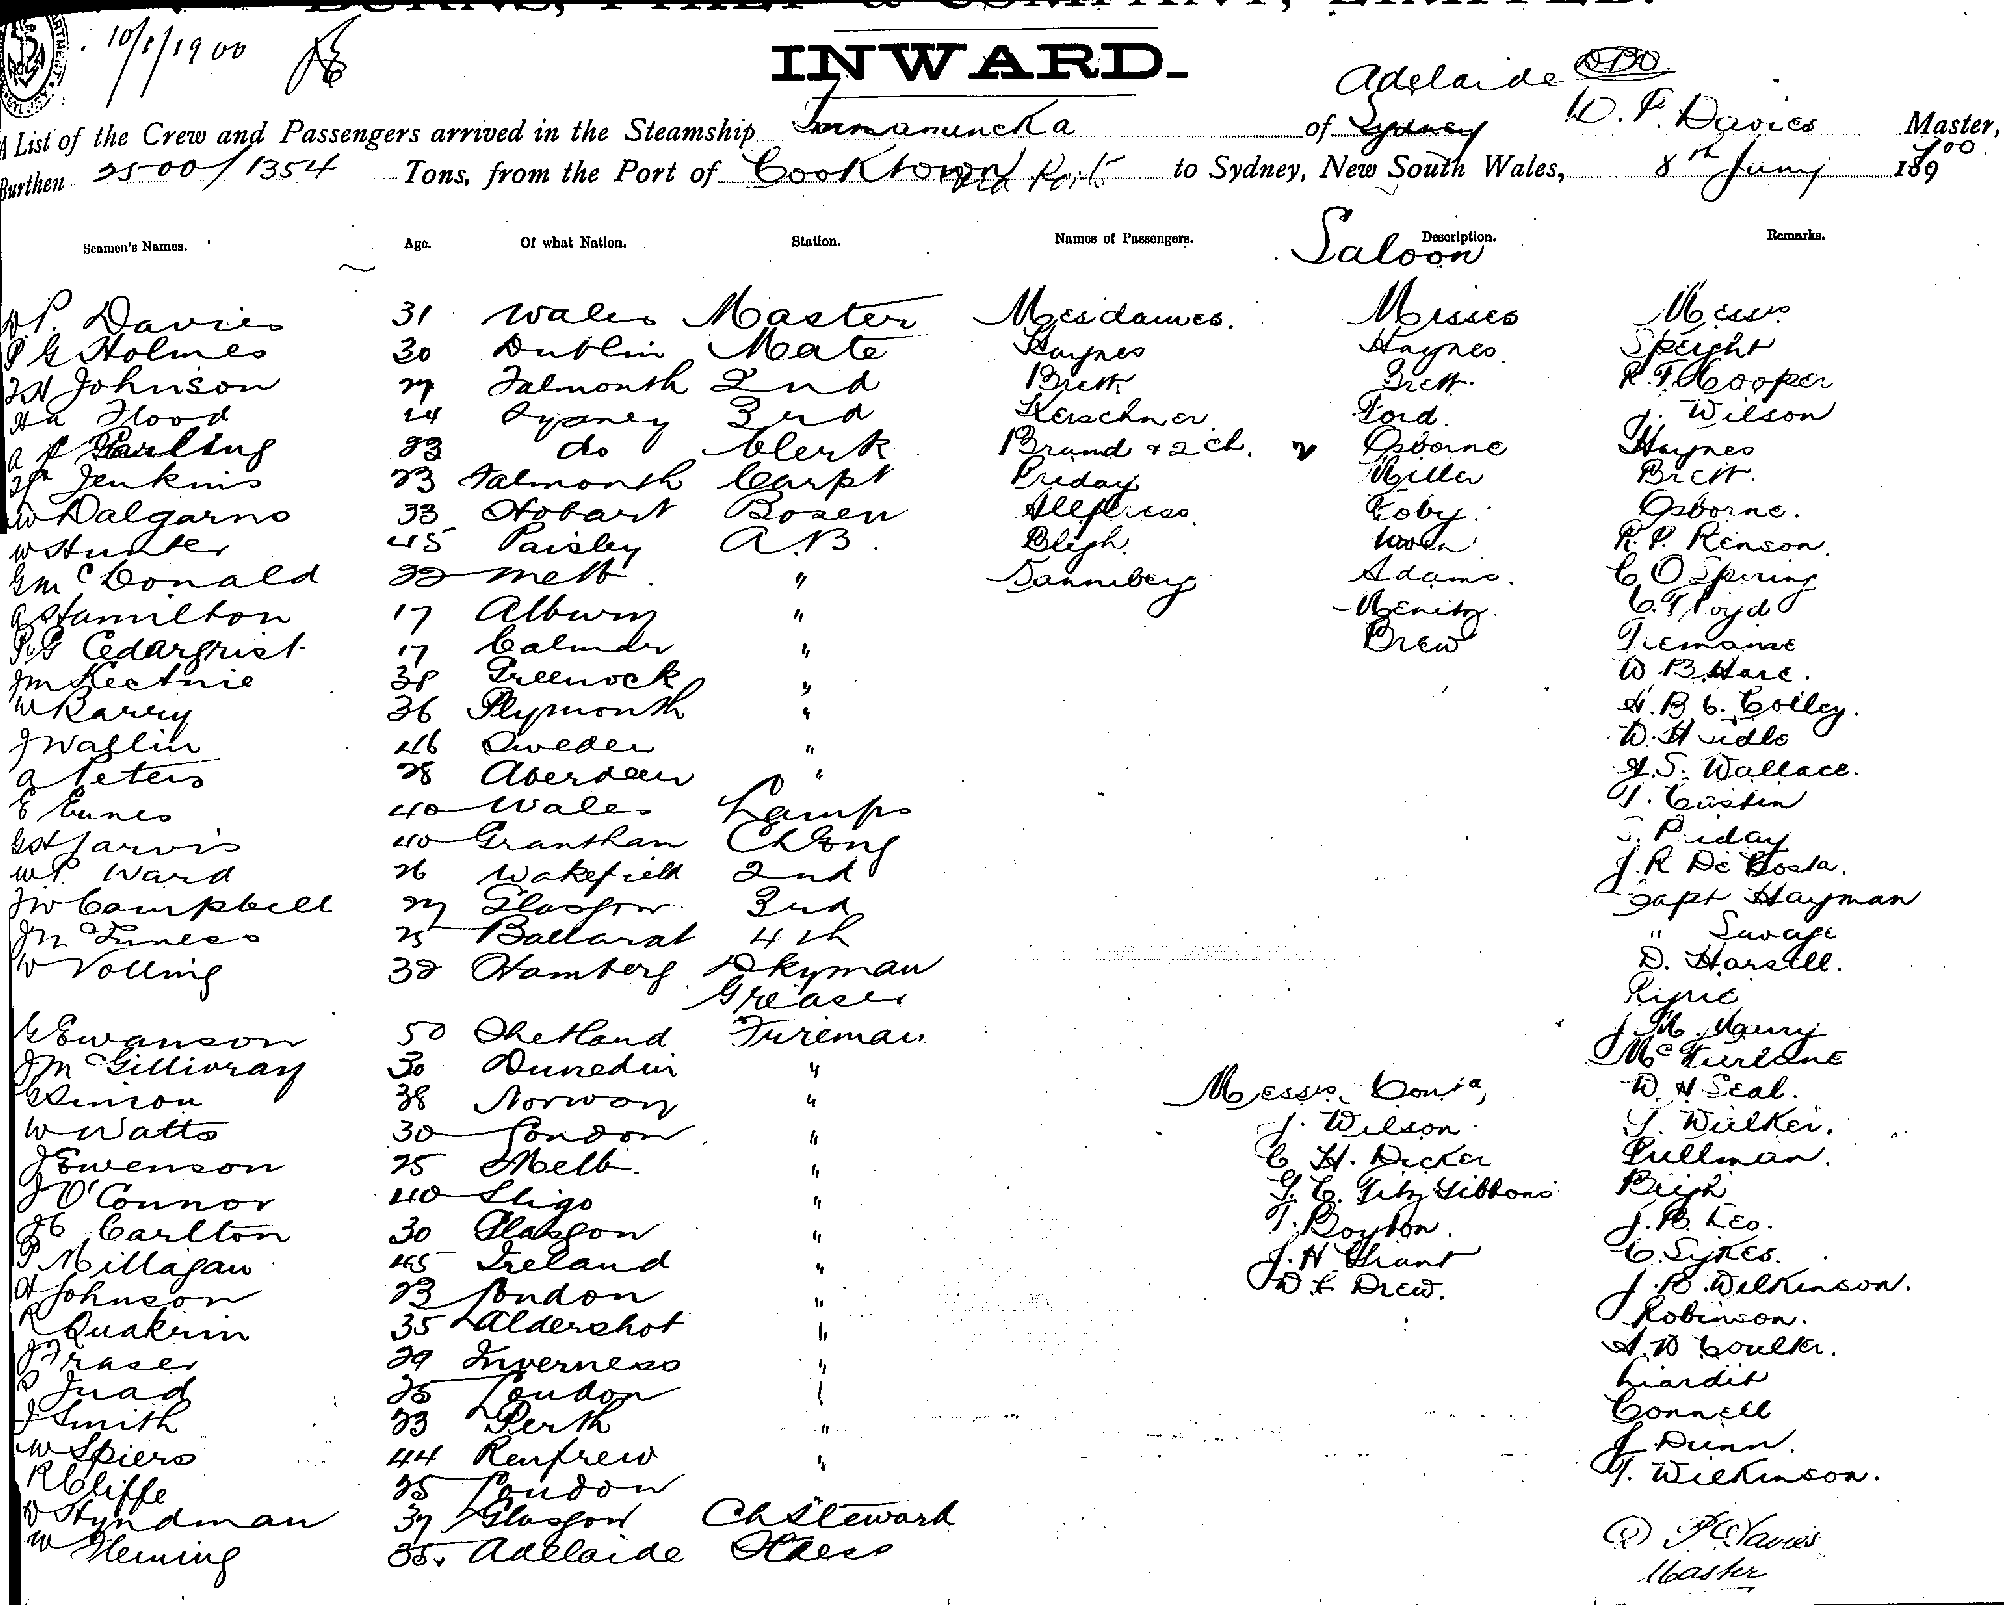 BURNS, PHILP & COMPANY, LIMITED.
10/1/1900
INWARD.
Adelaide
A List of the Crew and Passengers arrived in the Steamship Innamincka of Sydney W. P. Davies Master,
Burthen 2500/1354 Tons, from the Port of Cooktown via Ports to Sydney, New South Wales, 8th Jany 1890 /00
Seamen's Names. Age. Of what Nation. Station. Names of Passengers. Description. Remarks.
Saloon
P. Davies 31 Wales Master Mesdames. Misses Messrs
P G Holmes 30 Dublin Mate Haynes Haynes. Speight
Johnson 27 Falmouth 2nd Brett Brett. R. T. Cooper
Flood 24 Sydney 3rd Kerschner. Ford. J. Wilson
Garling 23 do Clerk Brand & 2 ch. 2 Osborne Haynes
Jenkins 23 Falmouth Carpt Priday Miller Brett.
W Dalgarno 33 Hobart Bosen Allpress. Coby. Osborne.
W Hunter 45 Paisley A.B. Bligh. R. P. Renson.
G McDonald 22 Melb. " Danneberg Adams. C O Spring
A Hamilton 17 Albury " C. Floyd
Cedargrist 17 Calmar " Brew
J McKechnie 38 Greenock " W. B. Hare.
W Barry 36 Plymouth " A. B. C. Colley.
J Wallin 46 Sweden "
A Peters 28 Aberdeen " A. S. Wallace.
E Eunes 40 Wales Lamps T. Custin
G H Jarvis 40 Grantham Ch Eng Priday
W P. Ward 26 Wakefield 2nd J. R. De Costa.
J W Campbell 27 Glasgow 3rd Capt Hayman
Funess 25 Ballarat 4th " Savage
W Volling 32 Hamberg Dkyman D. Harsell.
Greaser Ryrie
G Ewanson 50 Shetland Fireman
J McGillivray 30 Dunedin " McFarlane
G Simon 38 Norway " Messrs Contd, W. H Seal.
W Watts 30 London " J. Wilson. Walker.
J Ewenson 25 Melb. " C. H. Dicker Pullman.
J O'Connor 40 Sligo " G. C. Fitz Gibbons Bligh
Carlton 30 Glasgow " T. Boyton. J. B. Leo.
P Millagan 45 Ireland " J. H. Grant C. Sykes.
A Johnson 23 London " D. L. Drew. J. B. Wilkinson.
R Quakrin 35 Aldershot " Robinson.
J Fraser 29 Inverness " A. D Coulter.
Juad 25 London Liardit
J Smith 23 Perth " Connell
W Spiers 44 Renfrew " J Dunn.
R Cliffe 25 London T. Wilkinson.
D Hyndman 37 Glasgow Ch Steward
W Fleming 35 Adelaide P Davies
Master